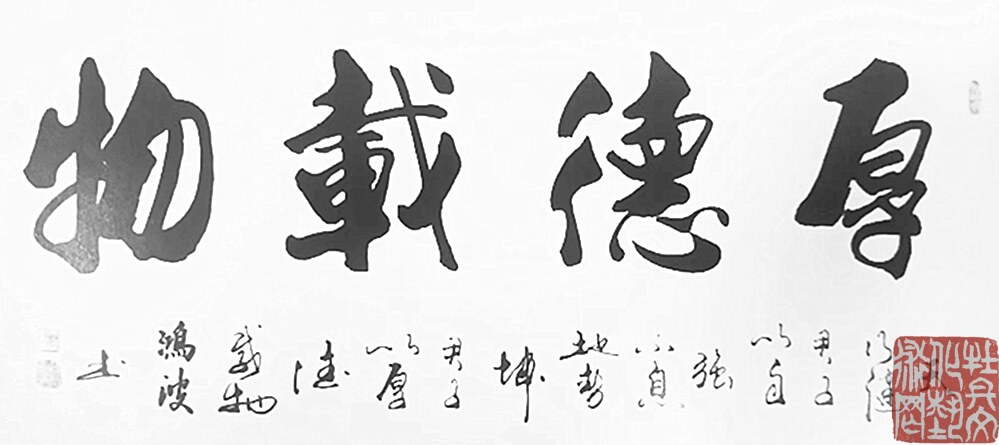 厚德載物
行健
君子
以自
强
不息
地勢
坤
君子
以厚
德
載物
鴻波
书